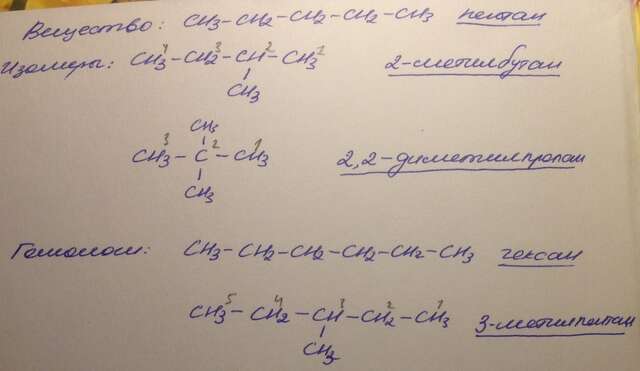 Вещество: CH3-CH2-CH2-CH2-CH3 пентан
Изомеры: CH3-CH2-CH-CH3 2-метилбутан
4 3 2 1
CH3
CH3
CH3-C-CH3 2,2-диметилпропан
3 2 1
CH3
Гомологи: CH3-CH2-CH2-CH2-CH2-CH3 гексан
CH3-CH2-CH-CH2-CH3 3-метилпентан
5 4 3 2 1
CH3